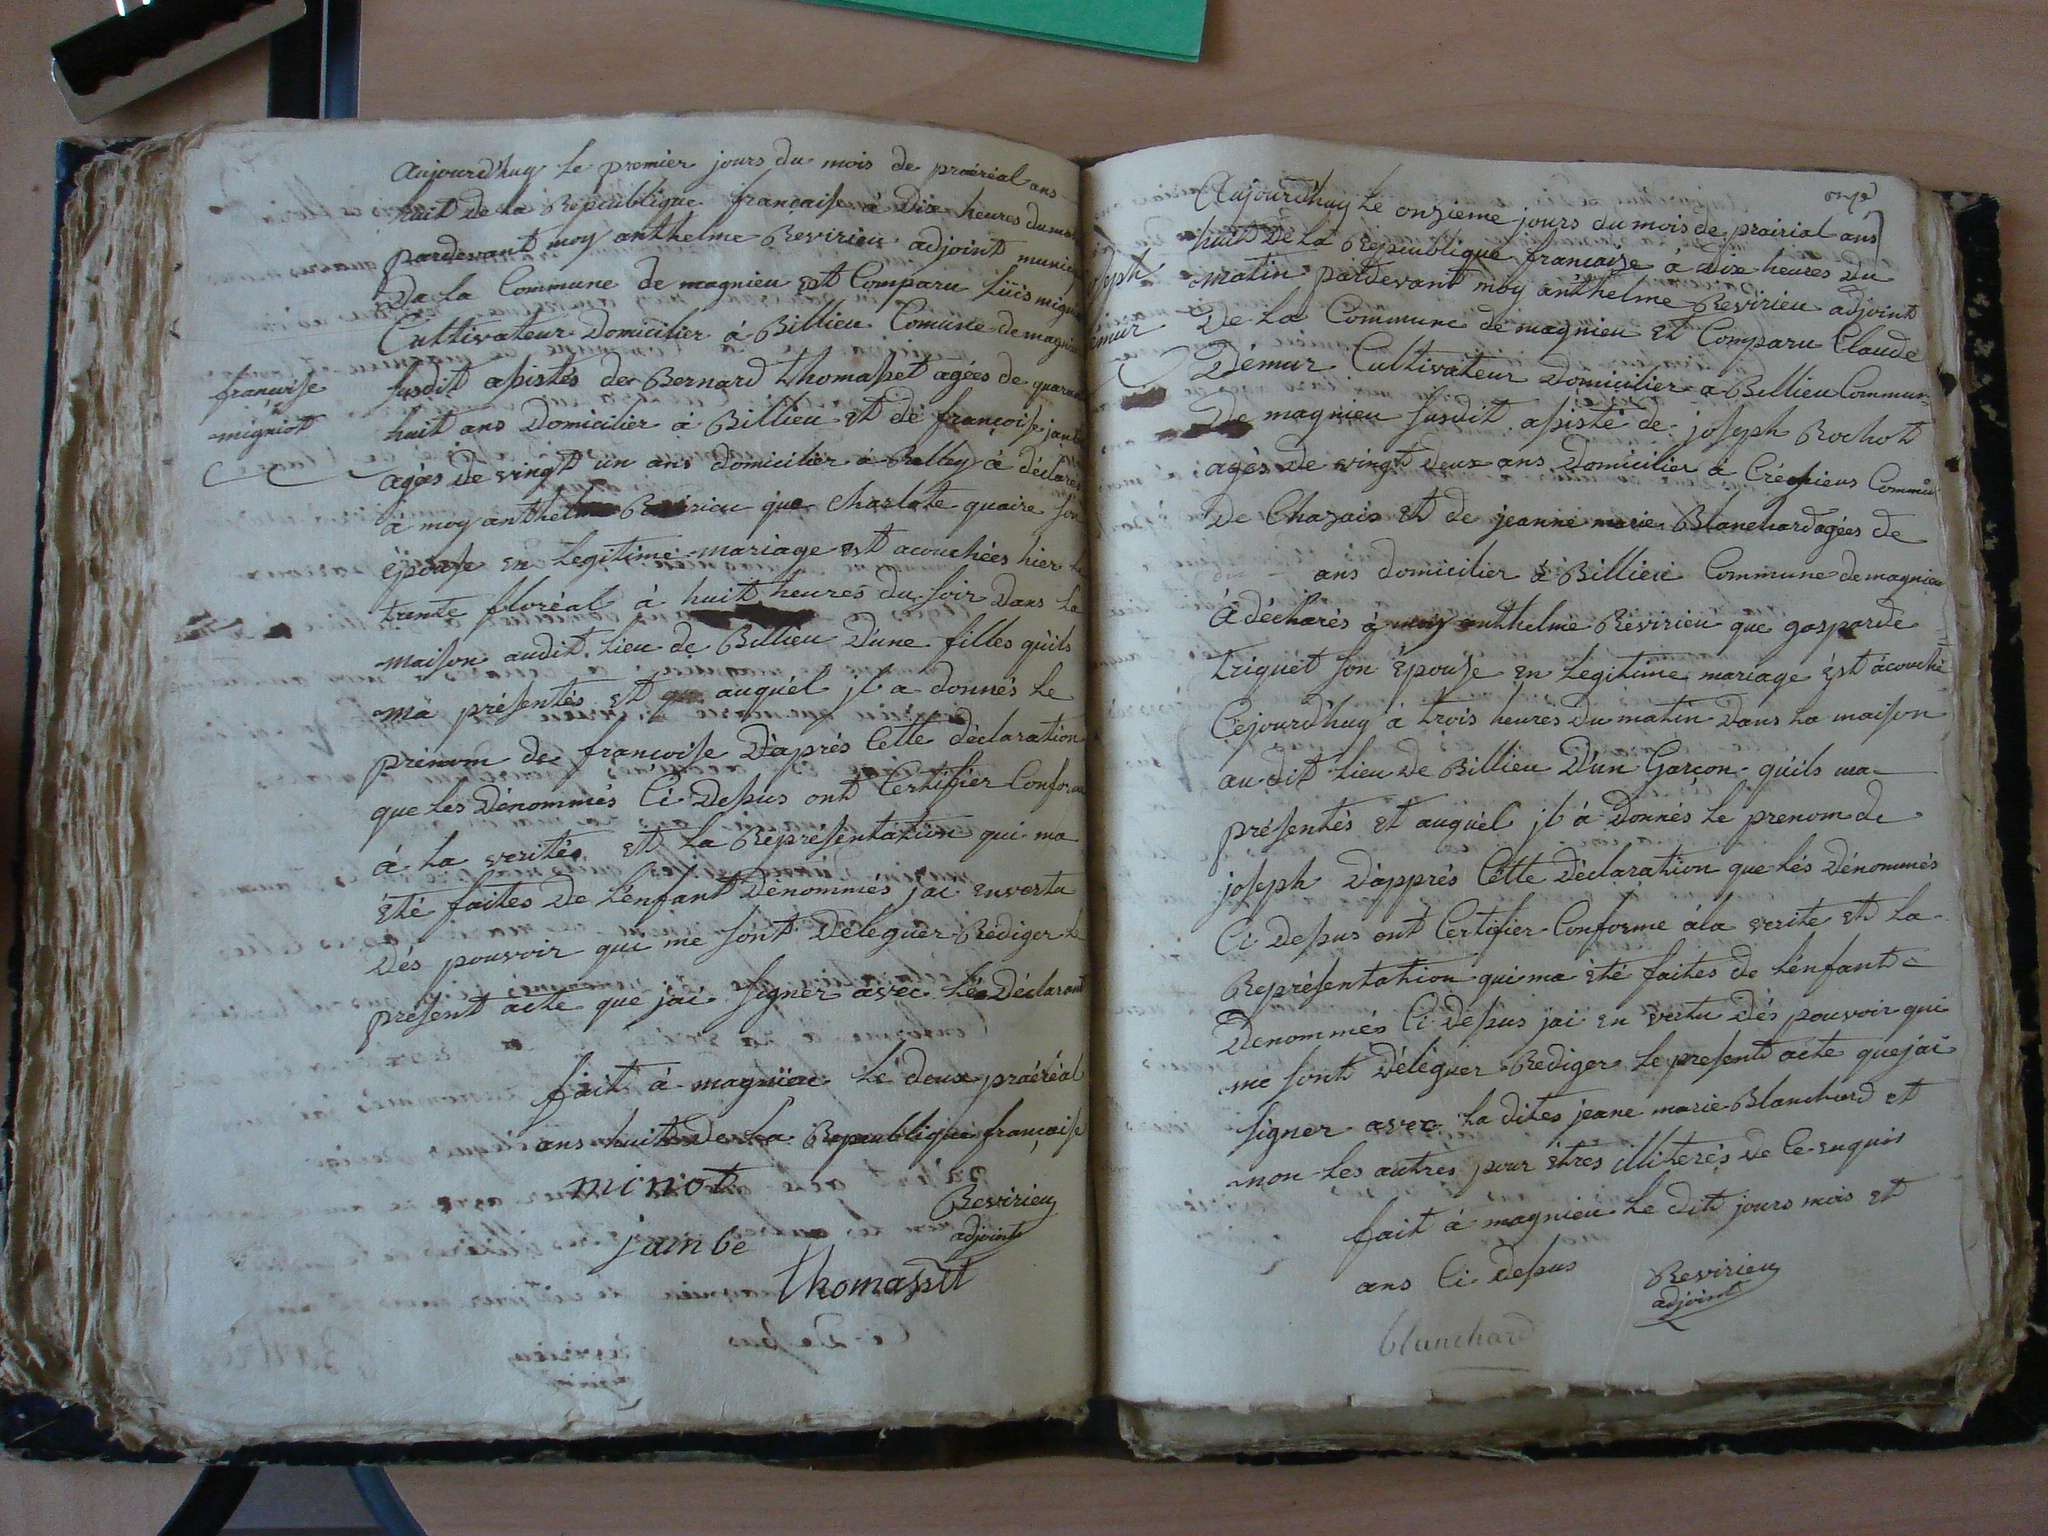 Aujourd'huy le premier jours du mois de praéréal ans
huit de la Republique françaiſe à dix heures du mat
pardevant moy anthelme Revirieu adjoint munici
De la Commune de magnieu est Comparu Luis mignot
Cultivateur Domicilier à Billieu Comune de magnieu
susdit aſsistés de Bernard thomaſset agées de quarante
huit ans Domicilier à Billieu et de françoiſe jambe
agées de vingt un ans domicilier à Belley à déclarés
à moy anthelme Revirieu que Charlote quaire son
épouse en Legitime mariage est acouchées hier le
trante floréal à huit heures du soir Dans la
maison audit lieu de Billieu D'une filles qu'ils
m'à présentés et auquél jl a donnés le
prénom de françoise D'après Cette déclaration
que les Dénommés Ci Deſsus ont Certifier Conforme
à la verités et la Representation qui ma
été faites de L'enfant Dénommés jai en vertu
Dés pouvoir qui me sont Déléguer Rédiger le
présent acte que jai signer avec Lé Déclarant
fait à magnieu le deux praéréal
ans huit de la Republique françaiſe
minot
Revirieu
adjoint
jambe
thomaſset
françoise
migniot
onze
Aujourd'huy Le onzieme jours du mois de prairial ans
huit De la Republique francaise à dix heures Du
matin pardevant moy anthelme Revirieu adjoint
De la Commune de magnieu et Comparu Claude
Démur Cultivateur Domicilier a Billieu Commune
De magnieu susdit aſsisté de joseph Rochot
agés de vingt deux ans Domicilier à Crégnieus Commu
De Chazais et de jeanne marie Blanchard agées de
ans domicilier à Billieu Commune de magnieu
à déclarés à moy anthelme Revirieu que gasparde
triguet son épouse en Legitime mariage ést àcouché
Cejourd'huy à trois heures Du matin Dans la maison
au dit Lieu de Billieu D'un Garçon qu'ils ma
présentés et auquél jl à Donnés le prenom de
joseph D'apprés Cétte Déclaration que Lés Dénommés
Ci Deſsus ont Certifier Conforme à la verite et La
Représentation qui ma été faites de L'enfant
Denommés Ci deſsus jai en vertu Dés pouvoir qui
mé sont Déléguer Rediger le present acte que jai
signer avec la dites jeane marie Blanchard et
non les autres pour étres illiterés de Ce enquis
fait à magnieu le dit jours mois et
ans Ci deſsus
Revirieu
adjoint
blanchard